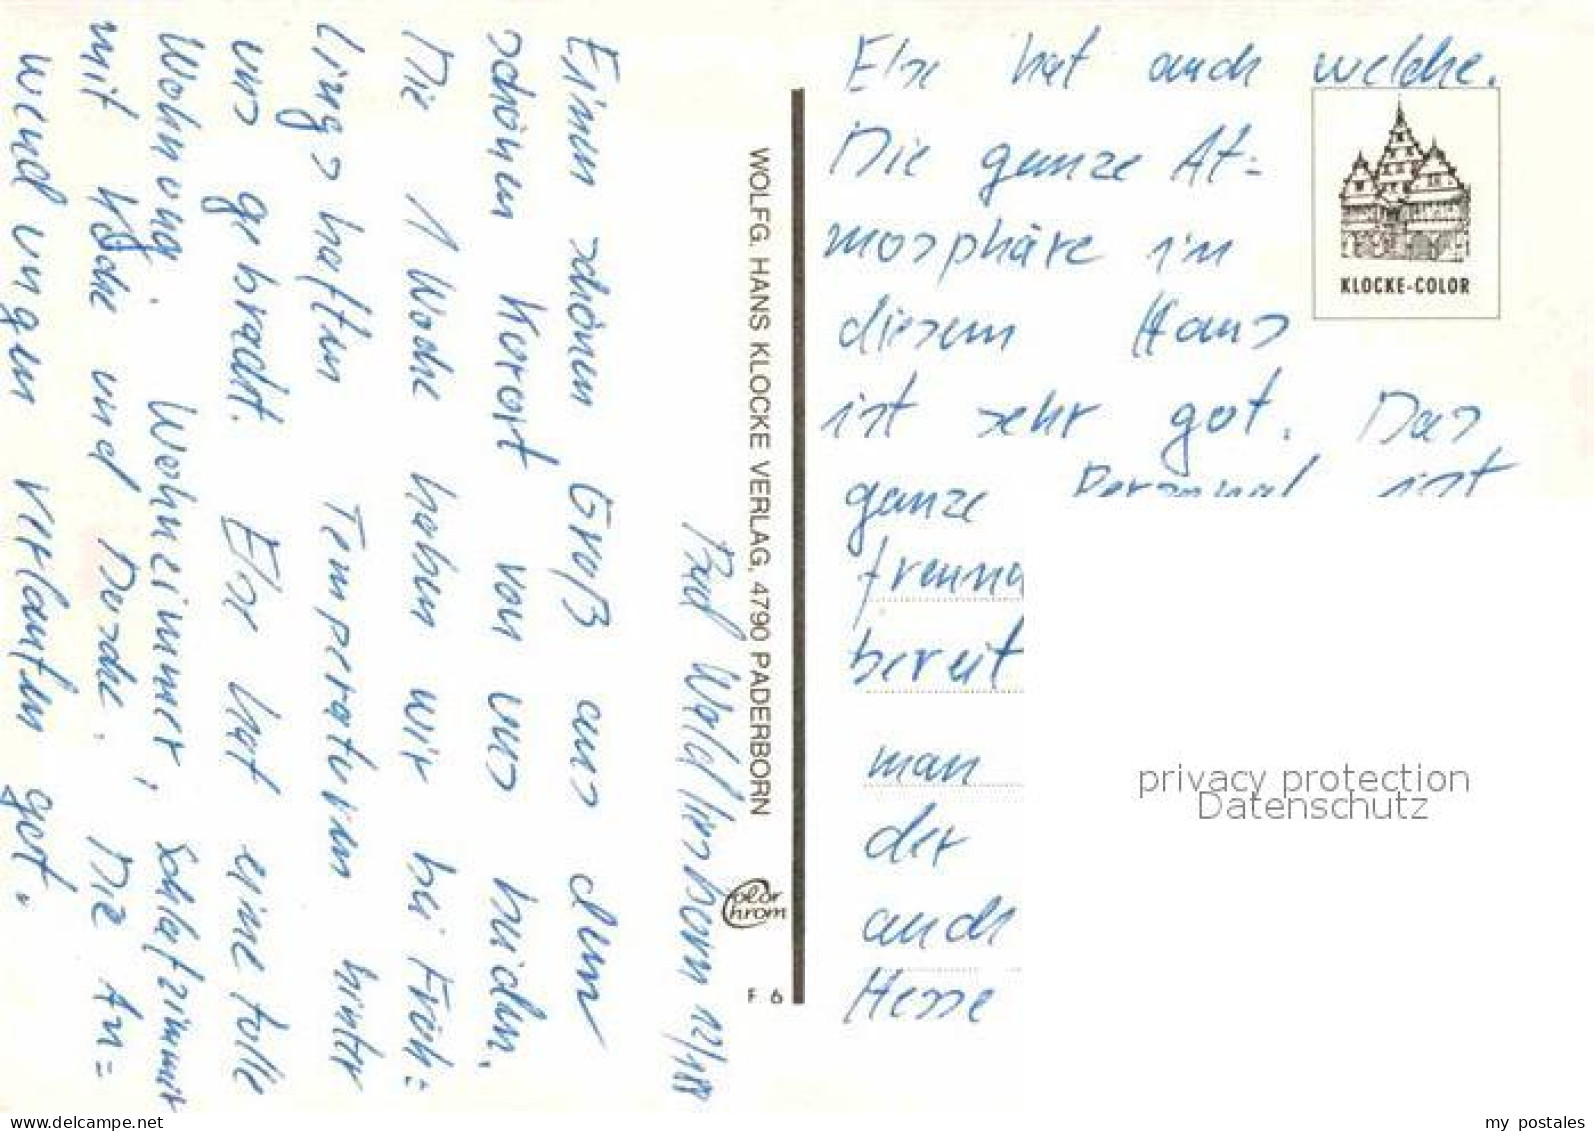 Bad Waldliesborn
Einen schönen Gruß aus dem
schönen Kurort von uns beiden.
Die 1 Woche haben wir bei Früh=
lingshaften Temperaturen hinter
uns gebracht. Else hat eine tolle
Wohnung. Wohnzimmer, Schlafzimmer
mit Küche und Dusche. Die An=
wendungen verlaufen gut.
WOLFG. HANS KLOCKE VERLAG, 4790 PADERBORN
Color Chrom
F 6
Else hat auch welche.
Die ganze At=
mosphäre in
diesem Haus
ist sehr gut. Das
ganze Personal ist
bereit
man
der
auch
Hesse
KLOCKE-COLOR
privacy protection
Datenschutz
delcampe.net
my_postales